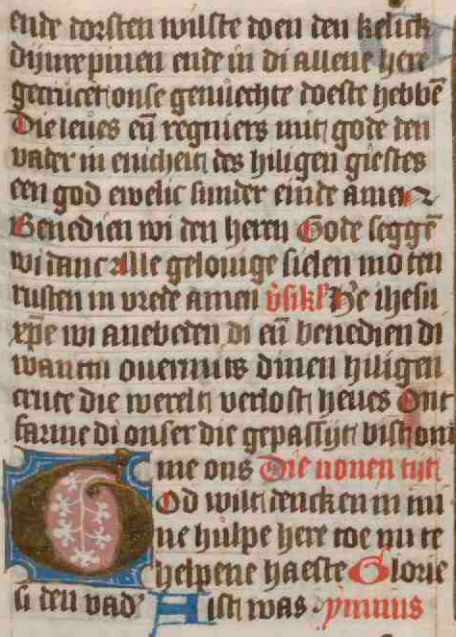 ende dorsten wilste doen den kelick
dijnre pinen ende in di allene here
gecrucet onse genuechte doeste hebbē
Die leues eñ regniers mit gode den
vader in enicheit des hiligen giestes
een god ewelic sunder einde amen
Benedien wi den heren Gode seggē
wi danc Alle gelouige sielen mo ten
rusten in vrede amen v̓sikl' He ihesu
xp̄e wi anebeden di eñ benedien di
want overmits dinen hiligen
cruce die werelt verlost heues Ont
farme di onser die gepassijt bist om
me ons Die nonen tijt
God wilt dencken in mi
ne hulpe here toe mi te
helpene haeste Glorie
si den vad' Alst was ymnus